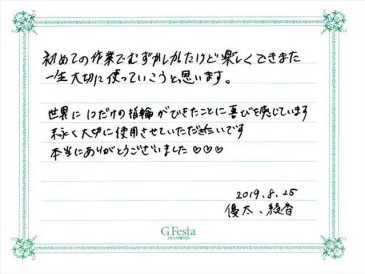 初めての作業でむずかしかたけど楽しくできまた
一生大切に使っていこうと思います。
世界に1つだけの指輪ができたことに喜びを感じています
末永く大切に使用させていただきたいです
本当にありがとうございました♡♡♡
2019.8.25
優太、綾香
G.Festa